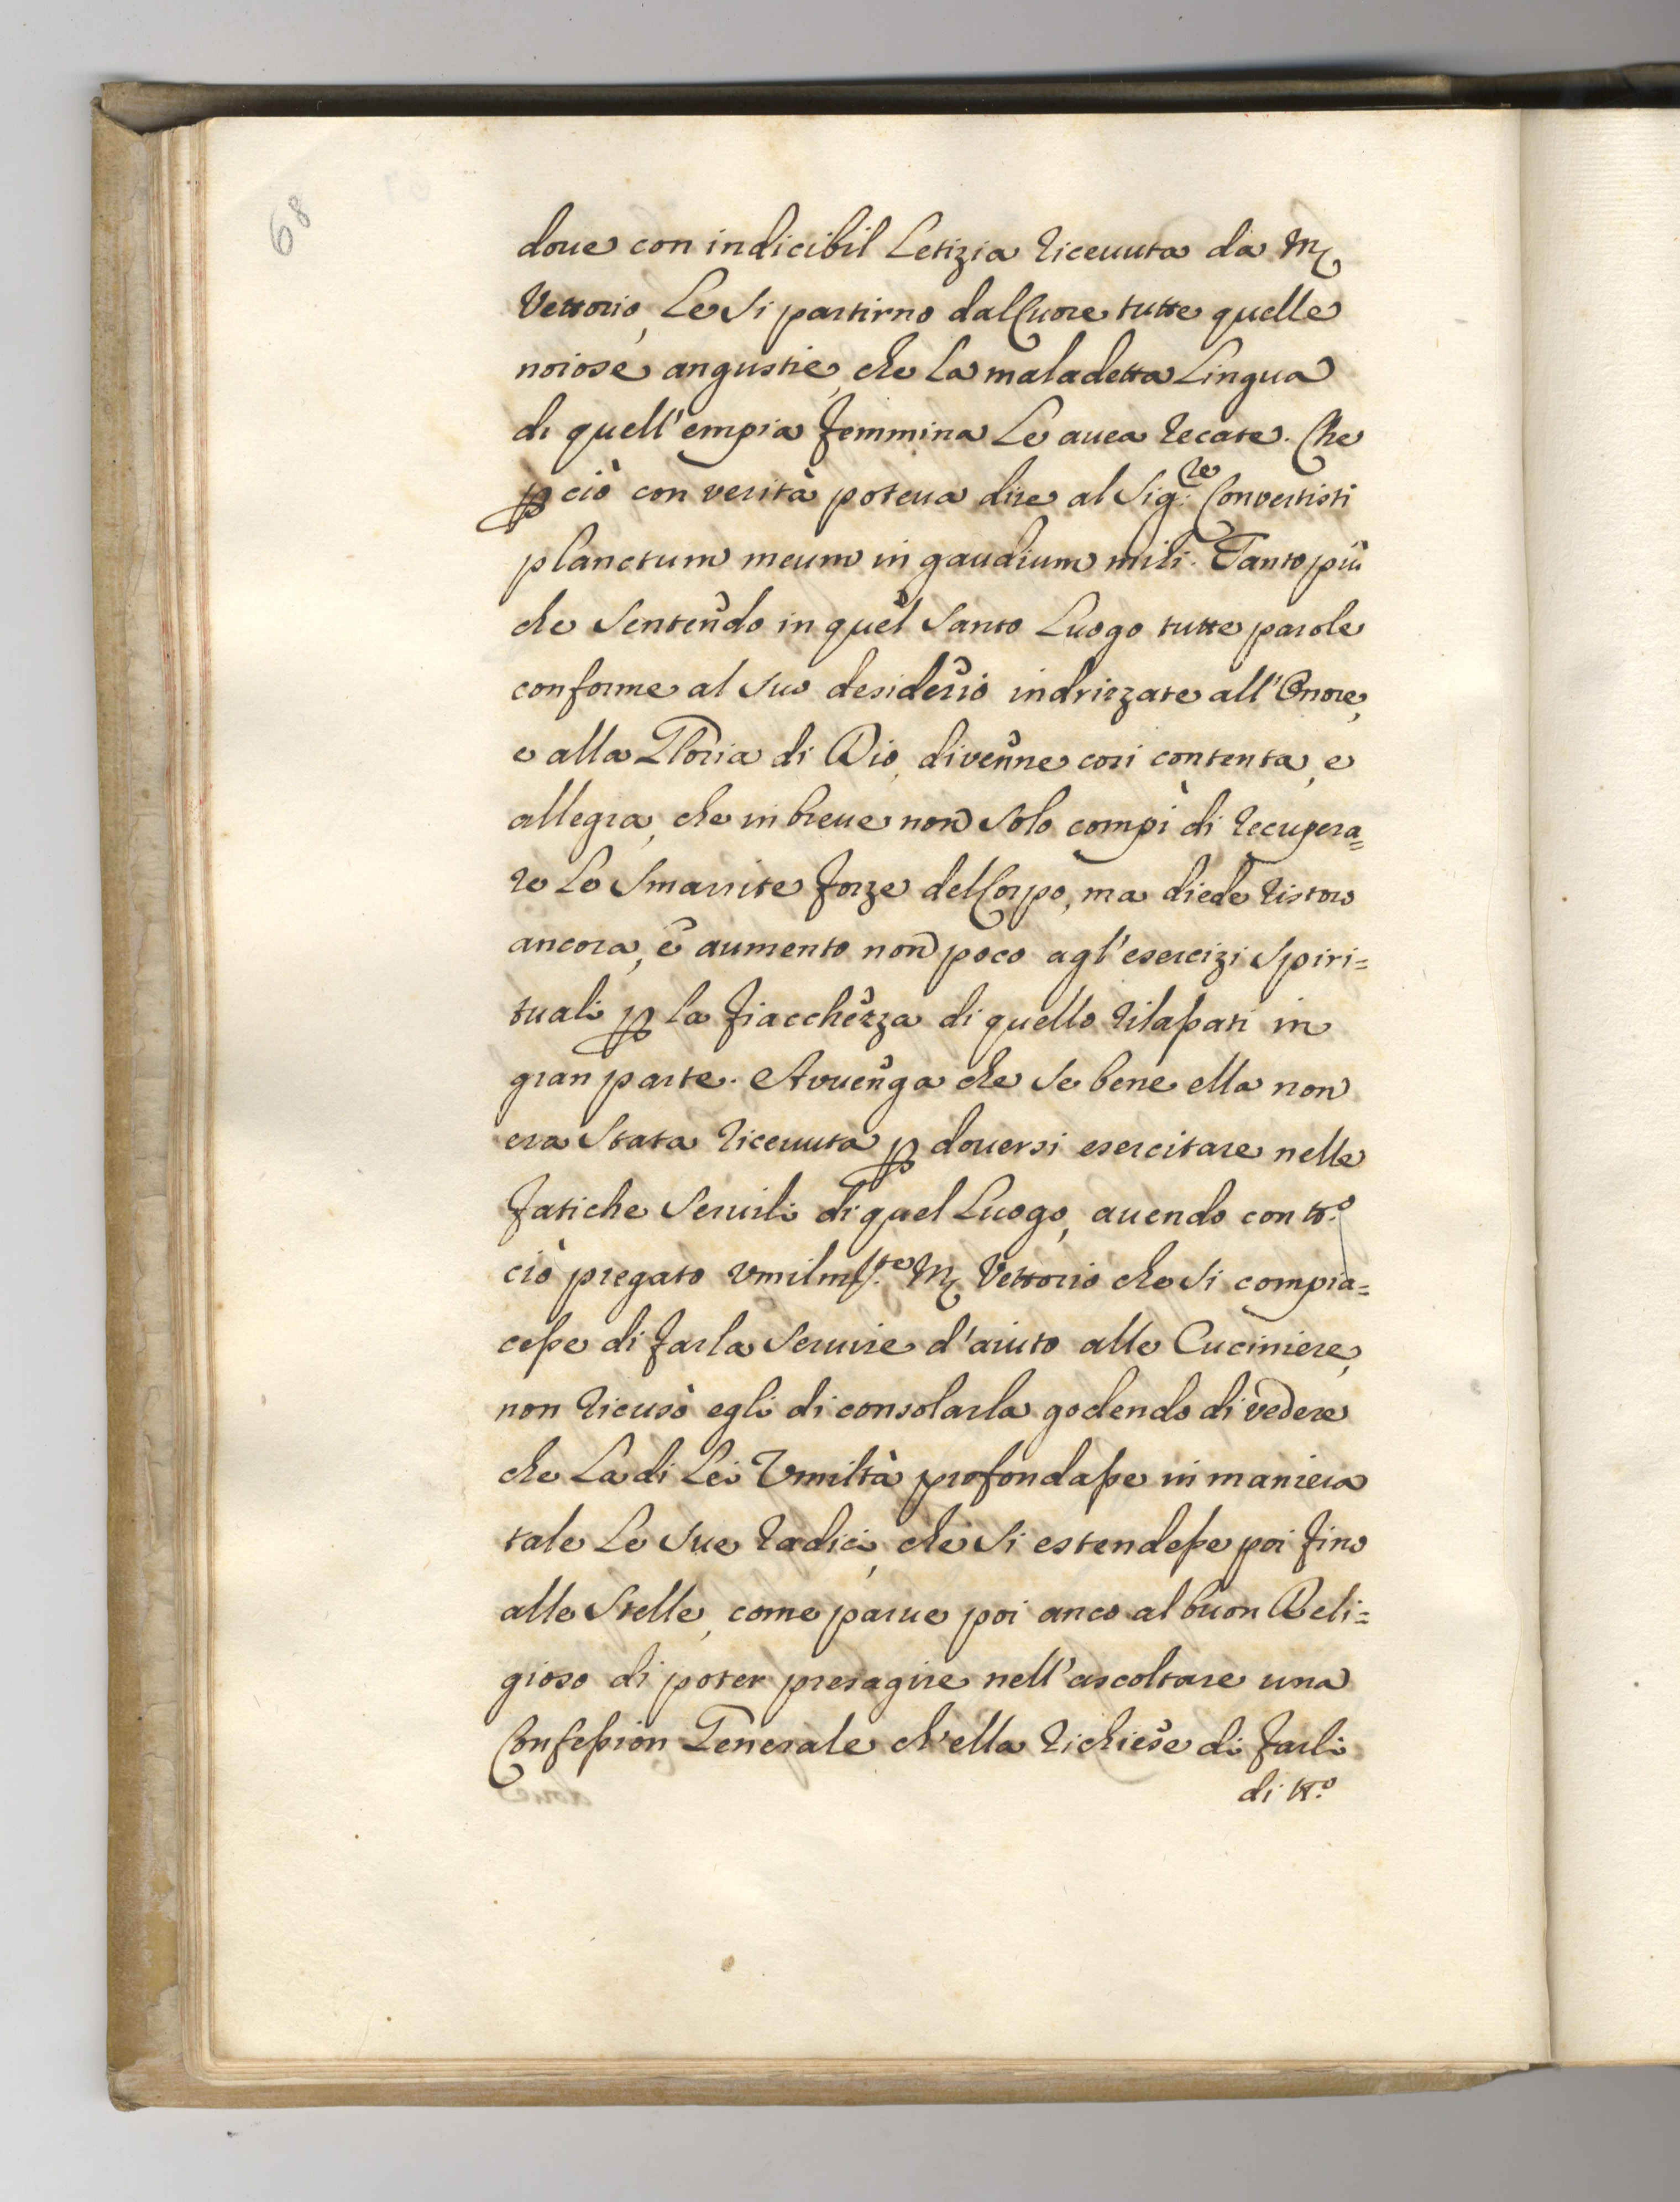 68
doue con indicibil Letizia riceuuta da M
Vettorio, Le si partirno dal Cuore tutte quelle
noiose angustie, che la maladetta Lingua
di quell'empia femmina Le auea recate. Che
p ciò con verità poteua dire al Sig.re Convertisti
planctum meum in gaudium mihi. Tanto più
che sentendo in quel santo Luogo tutte parole
conforme al suo desiderio indrizzate all'Onore,
e alla Gloria di Dio, divenne così contenta, e
allegra, che in breue non solo compì di recupera=
re le smarrite forze del Corpo, ma diede ristoro
ancora, e aumento non poco agl'esercizi spiri=
tuali p la fiacchezza di quello rilassati in
gran parte. Avuenga che se bene ella non
era stata riceuuta p douersi esercitare nelle
fatiche seruili di quel Luogo, auendo con tt.o
ciò pregato vmilm.te M Vettorio che si compia=
cesse di farla seruire d'aiuto alle Cuciniere,
non ricusò egli di consolarla godendo di vedere
che La di Lei Vmiltà profondasse in maniera
tale Le sue radici, che si estendesse poi fino
alle stelle, come parue poi anco al buon Reli=
gioso di poter presagire nell'ascoltare una
Confession Generale ch'ella richiese di farli
di tt.o